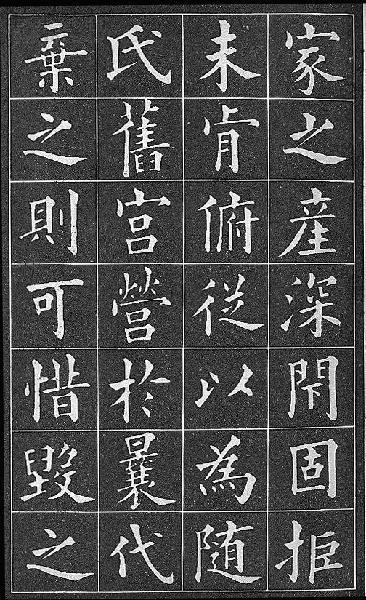 家之産深閇固拒
未肯俯從以為隨
氏舊宮營於曩代
棄之則可惜毀之